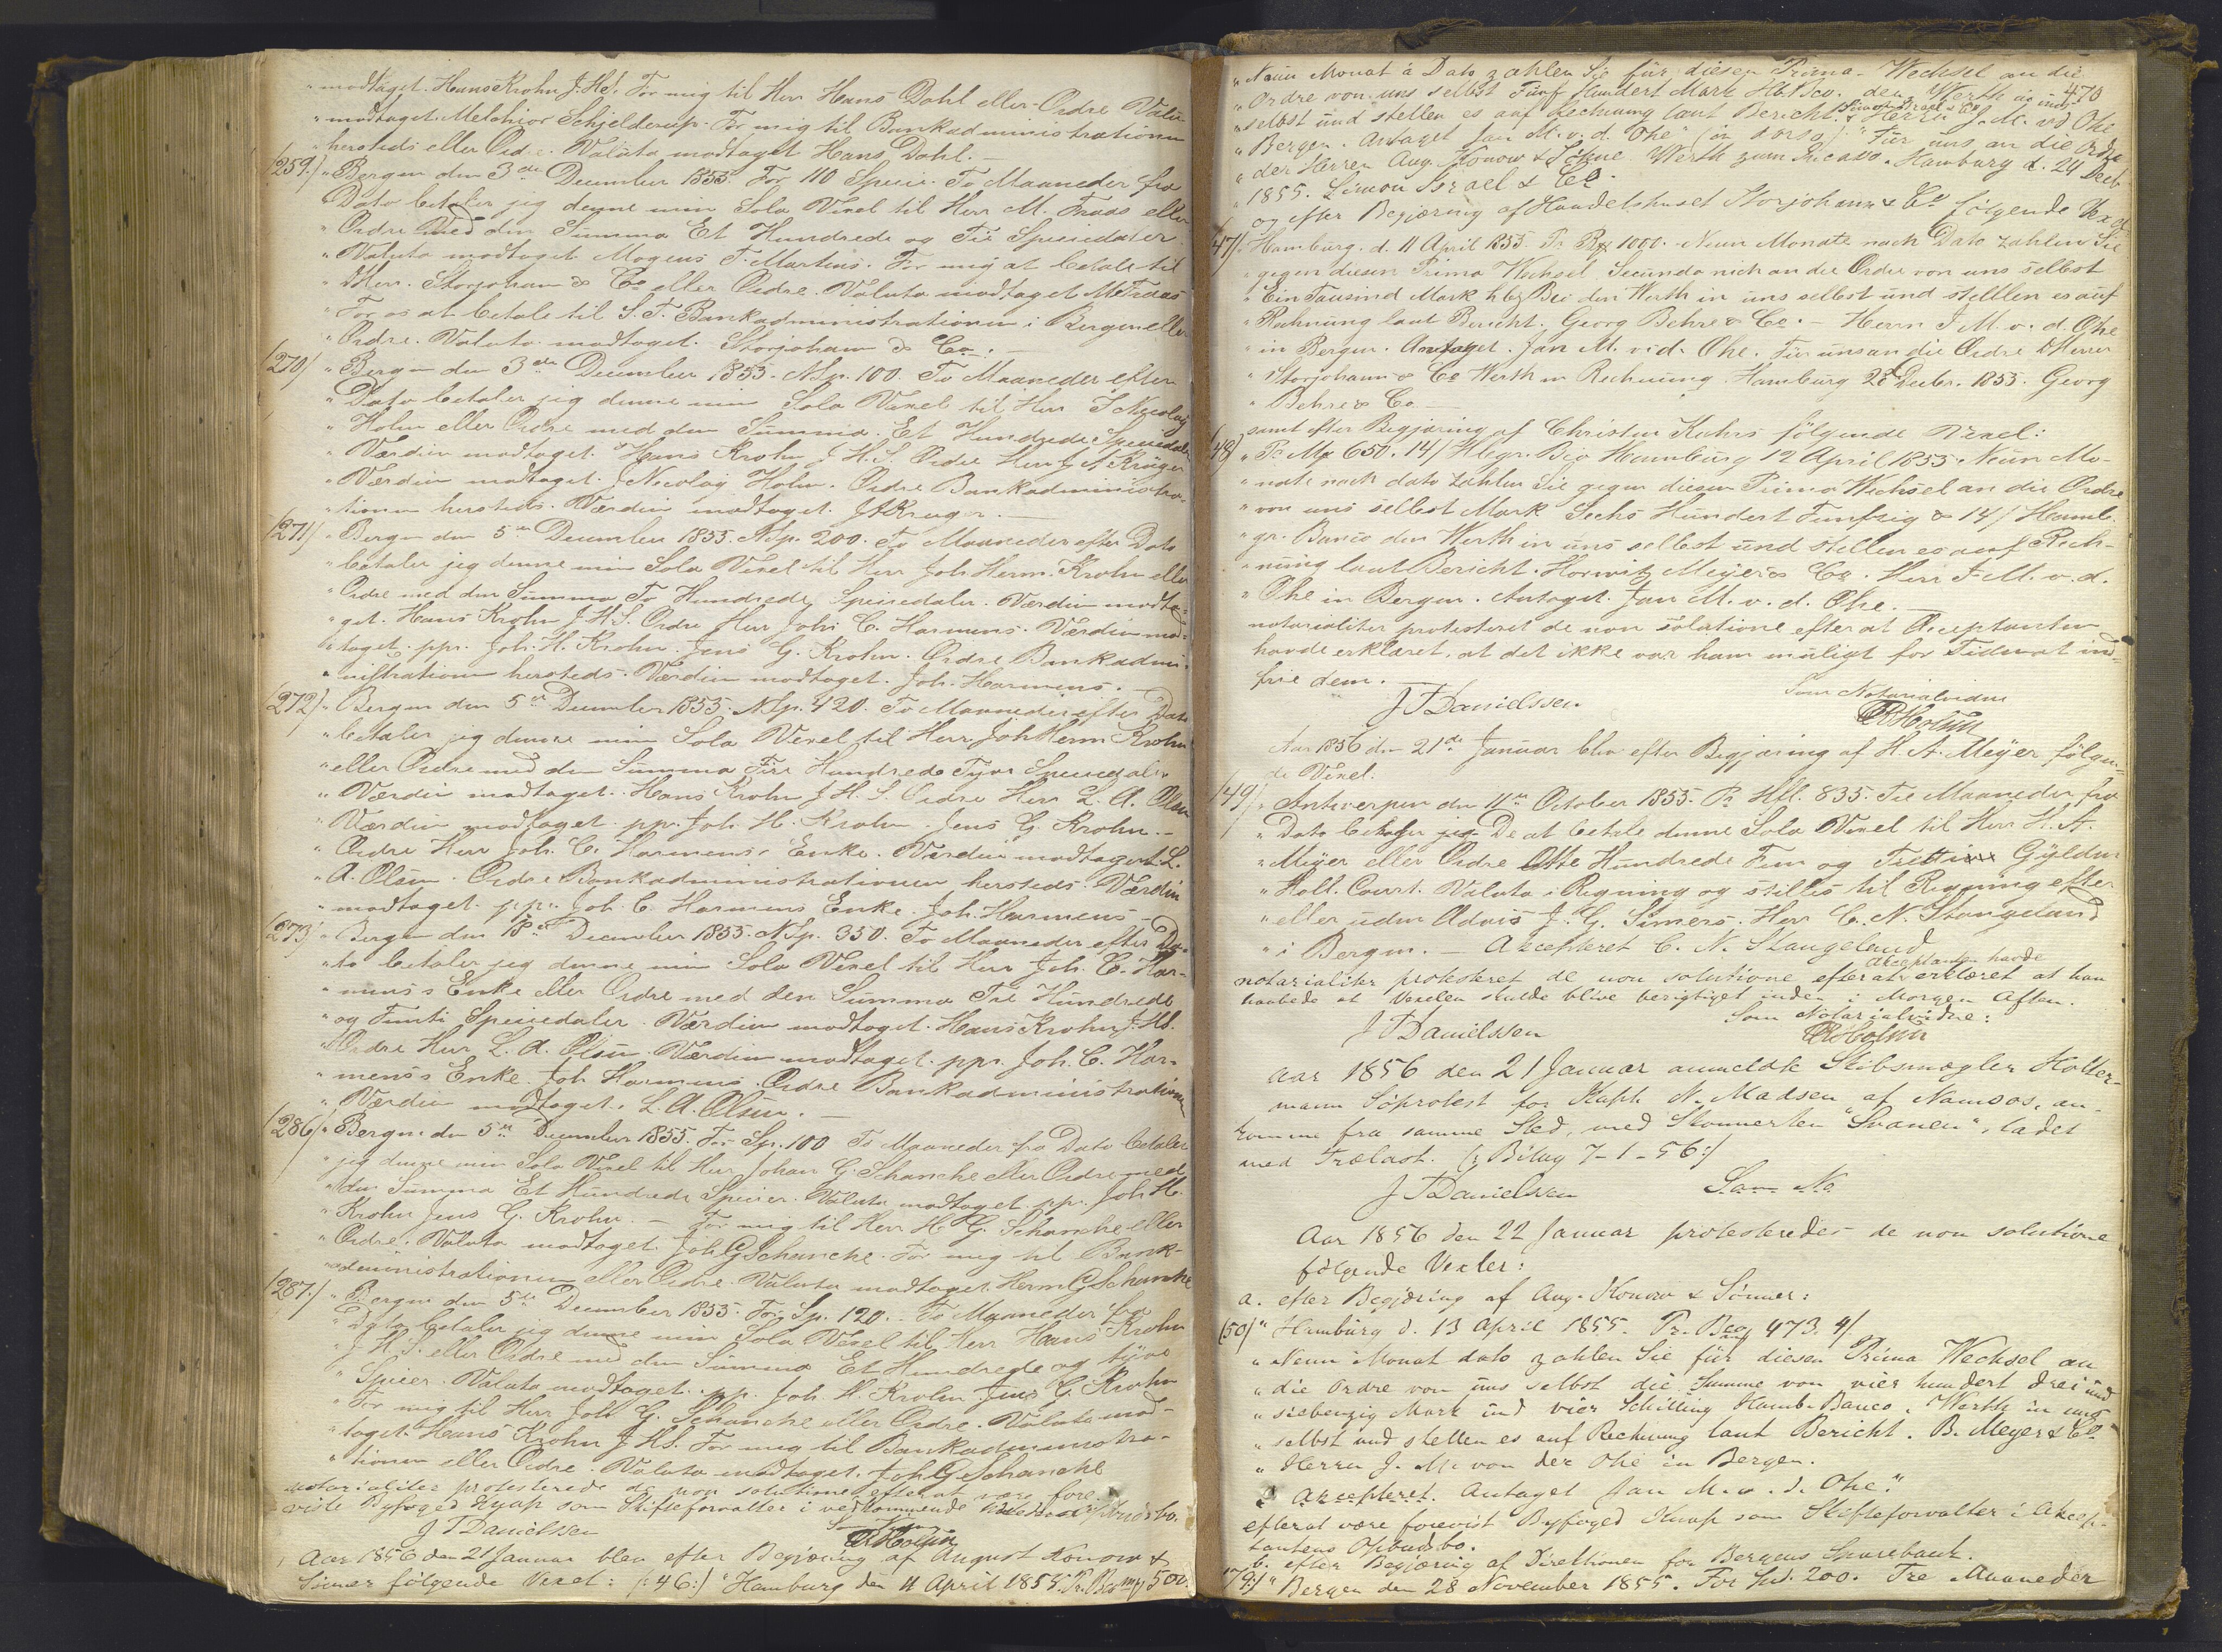 "modtaget. Hans Krohn J. HS. For mig til Herr Hans Dahl eller Ordre Valu-
"modtaget. Melchior Schjelderup. For mig til Bankadministrationen
"hersteds eller Ordre. Valuta modtaget Hans Dahl.—
(259) "Bergen den 3de December 1855. For 110 Specie. To Maaneder fra
"Dato betaler jeg denne min Sola Vexel til Herr M. Traas eller
"Ordre med den Summa Et Hundrede og Tie Speciedaler
"Valuta modtaget Mogens T. Martens. For mig at betale til
"DHerr. Storjohann & Co eller Ordre. Valuta modtaget M. Traas
"For os at betale til S. T. Bankadministrationen i Bergen eller
"Ordre. Valuta modtaget. Storjohann & Co.—
(270) "Bergen den 3de December 1855. NSp. 100. To Maaneder efter
"Dato betaler jeg denne min Sola Vexel til Herr J Nicolay
"Holm eller Ordre med den Summa Et Hundrede Speciedaler
"Værdien modtaget. Hans Krohn J. H. S. Ordre Herr J A Krüger
"Værdien modtaget. J Nicolay Holm. Ordre Bankadministra-
"tionen hersteds. Værdien modtaget. J A Krüger.—
(271) "Bergen den 5te December 1855. NSp. 200. To Maaneder efter Dato
"betaler jeg denne min Sola Vexel til Herr Joh. Herm. Krohn eller
"Ordre med den Summa To Hundrede Speciedaler. Værdien modta-
"get. Hans Krohn J. H. S. Ordre Herr Johs C. Harmens. Værdien mod-
"taget. ppr. Joh. H. Krohn. Jens G. Krohn. Ordre Bankadmi-
"nistrationen hersteds. Værdien modtaget. Joh. Harmens.—
(272) "Bergen den 5te December 1855. NSp. 420. To Maaneder efter Dato
"betaler jeg denne min Sola Vexel til Herr Joh Herm Krohn
"eller Ordre med den Summa Fire Hundrede Tyve Speciedaler
"Værdien modtaget. Hans Krohn J. H. S. Ordre Herr L. A. Olsen
"Værdien modtaget. pp. Joh. H. Krohn. Jens G. Krohn.—
"Ordre Herr Joh. C. Harmens's Enke. Værdien modtaget. L.
"A. Olsen. Ordre Bankadministrationen hersteds. Værdien
"modtaget. ppr. Joh. C. Harmens Enke. Joh. Harmens—
(273) "Bergen den 18de December 1855. NSp. 350. To Maaneder efter Da-
"to betaler jeg denne min Sola Vexel til Herr Joh. C. Har-
"mens's Enke eller Ordre med den Summa Tre Hundrede
"og Femti Speciedaler. Værdien modtaget. Hans Krohn J. HS.
"Ordre Herr L. A. Olsen. Værdien modtaget. ppr. Joh. C. Har-
"mens's Enke. Joh Harmens. Ordre Bankadministrationen
"Værdien modtaget. L. A. Olsen.—
(286) "Bergen den 5te December 1855. For Sp. 100 To Maaneder fra Dato betaler
"jeg denne min Sola Vexel til Herr Johan G. Schancke eller Ordre med
"den Summa Et Hundrede Specier. Valuta modtaget pp. Joh H.
"Krohn Jens G. Krohn.— For mig til Herr H G. Schancke eller
"Ordre. Valuta modtaget. Joh. G Schancke. For mig til Bank-
"administrationen eller Ordre. Valuta modtaget. Herm G Schancke
(287) "Bergen den 5te December 1855. For Sp. 120.— To Maaneder fra
"Dato betaler jeg denne min Sola Vexel til Herr Hans Krohn
"J. H. S. eller Ordre med den Summa Et Hundrede og tyve
"Specier. Valuta modtaget. pp. Joh. H. Krohn Jens G. Krohn
"For mig til Herr Joh G. Schancke eller Ordre. Valuta mod-
"taget. Hans Krohn J HS. For mig til Bankadministra-
"tionen eller Ordre. Valuta modtaget. Joh G Schancke
notarialiter protesterede de non solutione efterat være fore
viste Byfoged Knap som Skifteforvalter i vedkommende
J T Danielssen
R Holm
Aar 1856 den 21 Januar blev efter Begjæring af August Konow &
Sønner følgende Vexel: (46:) "Hamburg den 11 April 1855. Pr. Bco mp 500.
470
"Neun Monat á Dato zahlen Sie für diesen Prima-Wechsel an die
"Ordre von uns selbst Fünf Hundert Mark Hb. Bco. den Werth in uns
"selbst und stellen es auf Rechnung laut Bericht. Simon Israel & Co Herrn J. M. vd Ohe
"Bergen. Antaget Jan M. v. d. Ohe" (in dorso): "Für uns an die Ordre
"der Herren Aug. Konow & Söhne Werth zum Incasso. Hamburg d. 24 Decb
"1855. Simon Israel & Co.
og efter Begjæring af Handelshuset Storjohann & Co følgende Vexel
(47) "Hamburg. d. 11 April 1855. Pr Bco 1000.- Neun Monate nach Dato zahlen Sie
"gegen diesen Prima Wechsel, Secunda nich an die Ordre von uns selbst
"Ein Tausind Mark hbg Bco den Werth in uns selbst und stelllen es auf
"Rechnung laut Bericht. Georg Behre & Co.— Herrn J M. v. d. Ohe
"in Bergen. Antaget. Jan M. v. d. Ohe. Für uns an die Ordre DHerrer
"Storjohann & Co Werth in Rechnung. Hamburg 28 Decbr. 1855. Georg
"Behre & Co—
samt efter Begjæring af Christen Kahrs følgende Vexel:
(48) "Pr Mp 650. 14/ Hbgr. Bco Hamburg 12 April 1855. Neun Mo-
"nate nach dato zahlen Sie gegen diesen Prima Wechsel an die Ordre
"von uns selbest Mark Sechs Hundert Funfzig & 14/ Hamb.
"gr. Banco den Werth in uns selbst und stellen es auf Rech-
"nung laut Bericht. Horwitz Meyer & Co. Herr J. M. v. d.
"Ohe in Bergen. Antaget. Jan M. v. d. Ohe.—
notarialiter protesteret de non solutione efter at Acceptanten
havde erklæret, at det ikke var ham muligt for Tiden at ind-
frie dem.—
J T Danielssen
Som Notarialvidne
R Holm
Aar 1856 den 21de Januar blev efter Begjæring af H. A. Meyer følgen-
de Vexel.
(49) "Antwerpen den 11te October 1855. Pr Hfl. 835. Tre Maaneder fra
"Dato behager De at betale denne Sola Vexel til Herr H. A.
"Meyer eller Ordre Otte Hundrede Fem og Tretti Gylden
"Holl. Court. Valuta i Regning og stilles til Regning efter
"eller uden Advis J. G. Simers. Herr C. N. Stangeland
"i Bergen.— Accepteret C. N. Stangeland
notarialiter protesteret de non solutione efterat Akceptanten havde erklæret at han
haabede at Vexelen skulde blive berigtiget inden i Morgen Aften.
Som Notarialvidne:
J T Danielssen
R Holm
Aar 1856 den 21 Januar anmeldte Skibsmægler Holter-
mann Søprotest for Kapt. N. Madsen af Namsos, an-
komme fra samme Sted, med Skonnerten "Svanen", ladet
med Trælast. (: Bilag 7-1-56:)
J T Danielssen
Som No
Aar 1856 den 22 Januar protesteredes de non solutione
følgende Vexler:
a. efter Begjæring af Aug. Konow & Sønner:
(50) "Hamburg d. 13 April 1855. Pr. Bco mp 473. 4/
"Neun Monat dato zahlen Sie für diesen Prima Wechsel an
"die Ordre von uns selbst die Summe von vier hundert drei und
"siebenzig Mark und vier Schilling Hamb. Banco. Werth in uns
"selbst und stellen es auf Rechnung laut Bericht. B. Meyer & Co.
"Herrn J. M. von der Ohe in Bergen.
"Akcepteret. Antaget Jan M. v. d. Ohe."
efterat være forevist Byfoged Knap som Skifteforvalter i Akcep-
tantens Opbudsbo.
b. efter Begjæring af Direktionen for Bergens Sparebank.
"Bergen den 28 November 1855. For Spd. 200. Tre Maaneder